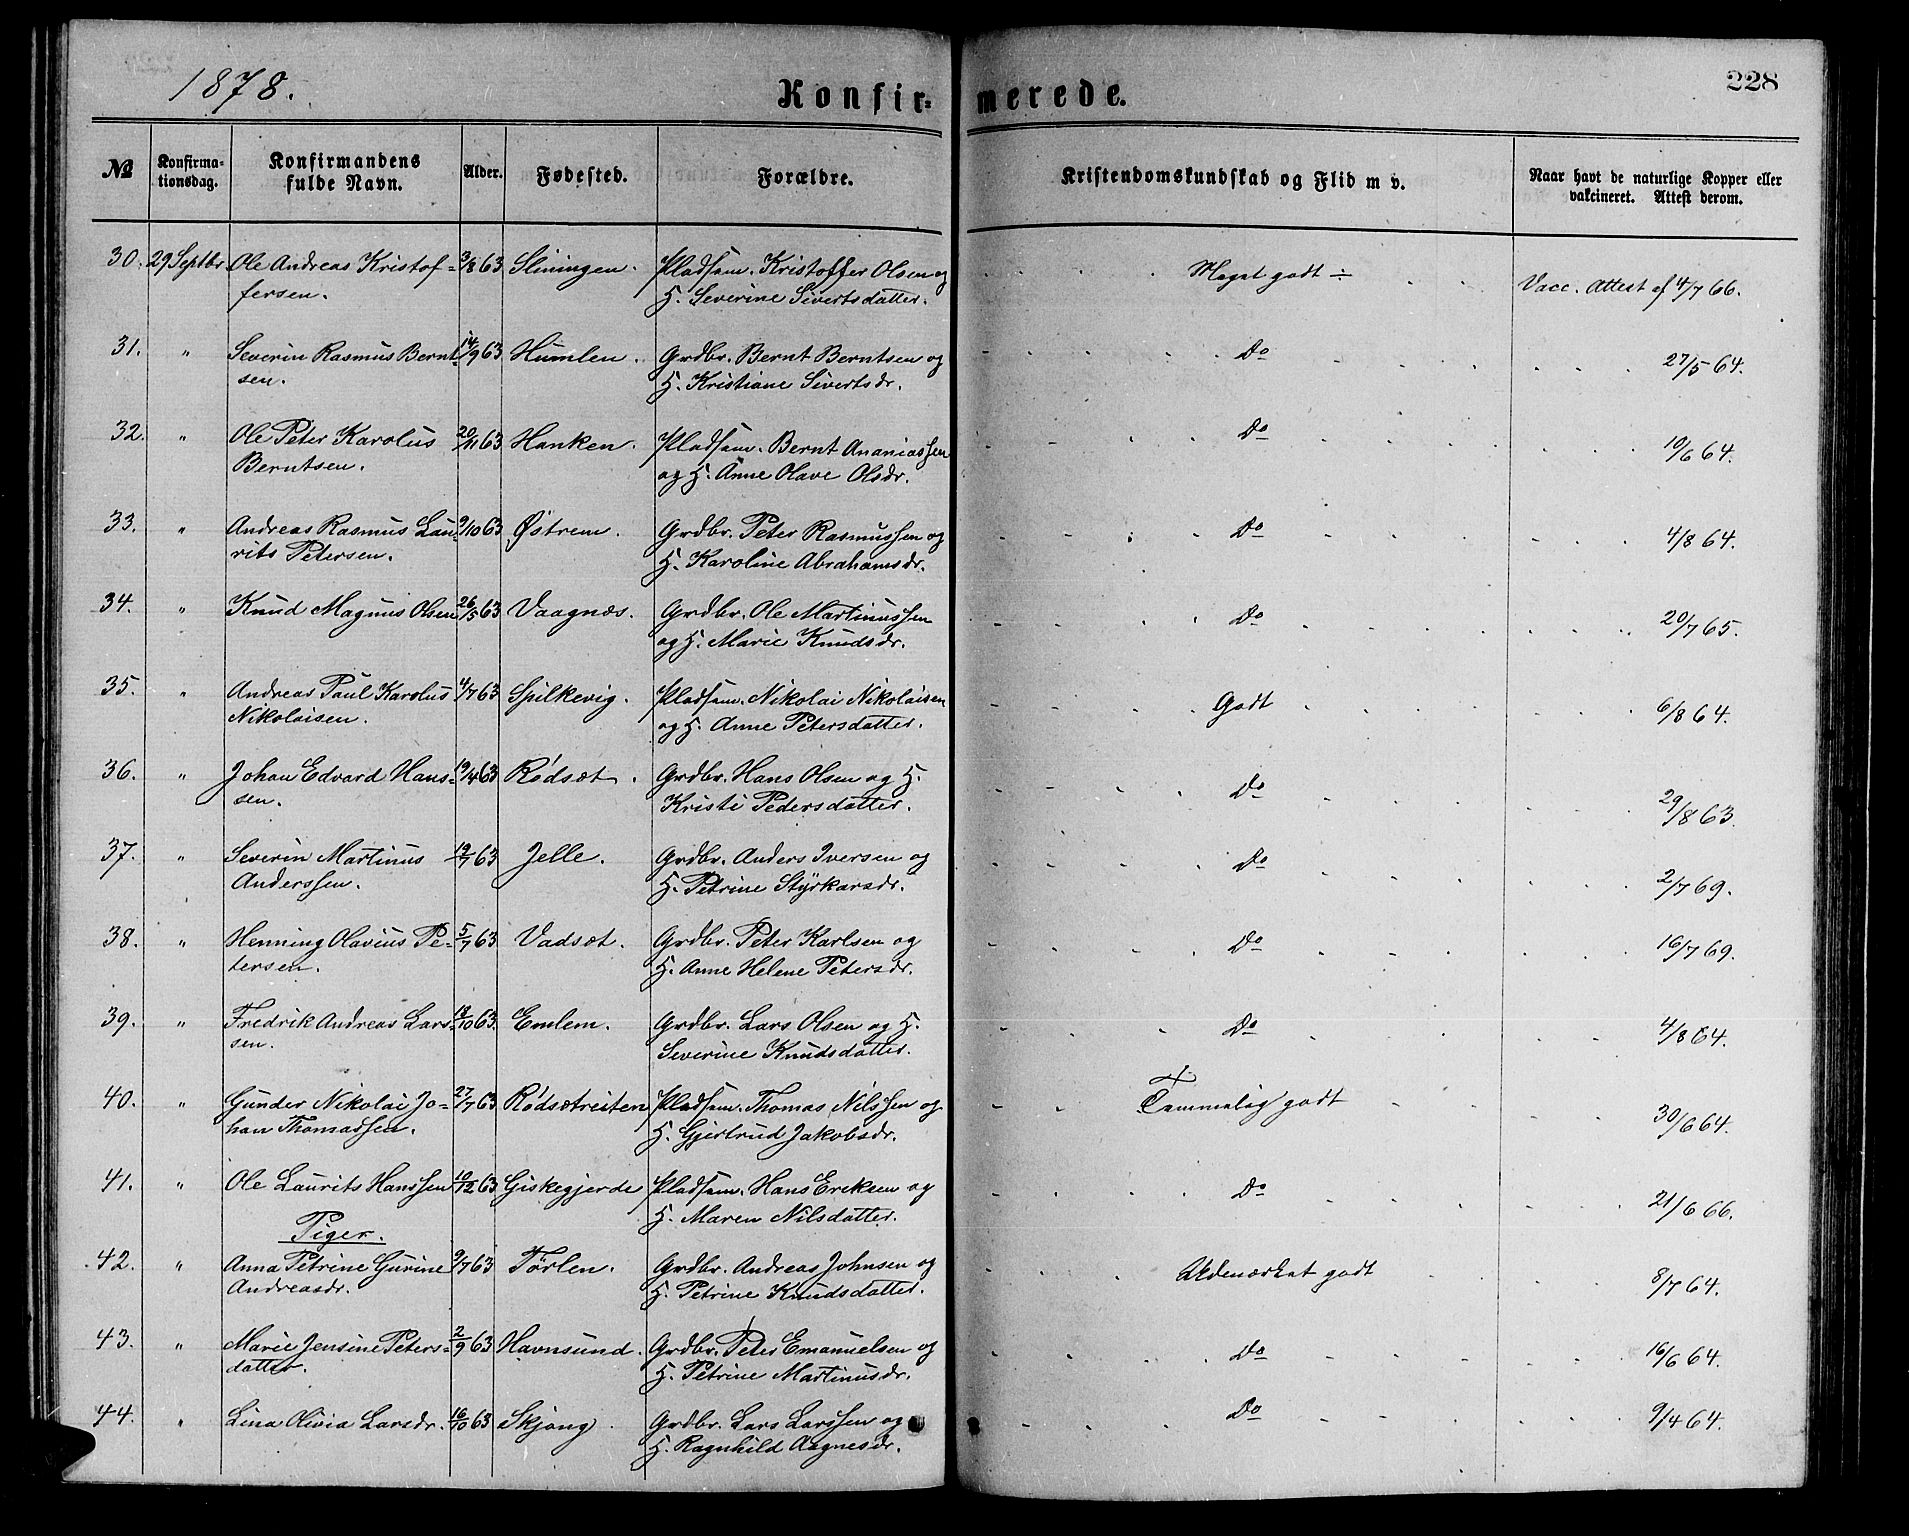 1878.
Konfir=
merede.
228
No
Konfirma=
tionsdag.
Konfirmandens
fulde Navn.
Alder.
Fødested.
Forældre.
Kristendomskundskab og Flid m v.
Naar havt de naturlige Kopper eller
vakcineret. Attest derom.
30. 29 Septbr. Ole Andreas Kristof= 3/8 63 Sliningen. Pladsm. Kristoffer Olsen og Meget godt ÷ Vacc. Attest af 4/7 66.
fersen. H. Severine Sivertsdatter.
31. " Severin Rasmus Bernt= 14/9 63 Humlen. Grdbr. Bernt Berntsen og Do 27/5 64.
sen. H. Kristiane Sivertsdr.
32. " Ole Peter Karolus 20/11 63 Hanken. Pladsm. Bernt Ananiassen Do 10/6 64.
Berntsen. og H. Anne Olave Olsdr.
33. " Andreas Rasmus Lau= 9/10 63 Østrem. Grdbr. Peter Rasmussen og Do 4/8 64.
rits Petersen. H. Karoline Abrahamsdr.
34. " Knud Magnus Olsen 26/5 63 Vaagnæs. Grdbr. Ole Martinussen Do 20/7 65.
og H. Marie Knudsdr.
35. " Andreas Paul Karolus 4/7 63 Spilkevig. Pladsm. Nikolai Nikolaisen Godt 6/8 64.
Nikolaisen. og H. Anne Petersdatter.
36. " Johan Edvard Hans= 19/4 63 Rødsæt. Grdbr. Hans Olsen og H. Do 29/8 63.
sen. Kristi Pedersdatter.
37. " Severin Martinus 19/7 63 Jelle. Grdbr. Anders Iversen og Do 2/7 69.
Anderssen. H. Petrine Styrkarsdr.
38. " Henning Olavius Pe= 5/7 63 Vadsæt. Grdbr. Peter Karlsen og Do 16/7 69.
tersen. H. Anne Helene Petersdr.
39. " Fredrik Andreas Lars= 18/10 63. Emlem. Grdbr. Lars Olsen og H. Do 4/8 64.
sen. Severine Knudsdatter.
40. " Gunder Nikolai Jo= 27/7 63 Rødsætreiten Pladsm. Thomas Nilssen og Temmelig godt 30/6 64.
han Thomassen. H. Gjertrud Jakobsdr.
41. " Ole Laurits Hanssen 10/12 63 Giskegjerde Pladsm. Hans Eriksen og Do 21/6 66.
H. Maren Nilsdatter.
Piger.
42. " Anna Petrine Gurine 9/7 63 Tørlen. Grdbr. Andreas Johnsen og Udmærket godt 8/7 64.
Andreasdr. H. Petrine Knudsdatter.
43. " Marie Jensine Peters= 2/9 63 Havnsund. Grdbr. Peter Emanuelsen og Do 16/6 64.
datter. H. Petrine Martinusdr.
44. " Lina Olivia Larsdr. 16/10 63 Skjong. Grdbr. Lars Larssen og Do 9/4 64.
H. Ragnhild Aagnesdr.